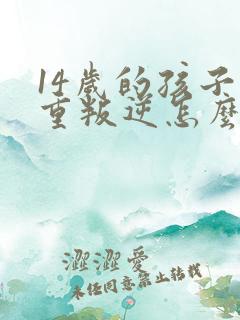 14歲的孩子
重叛逆怎麼
澀澀愛
未经同意禁止转载